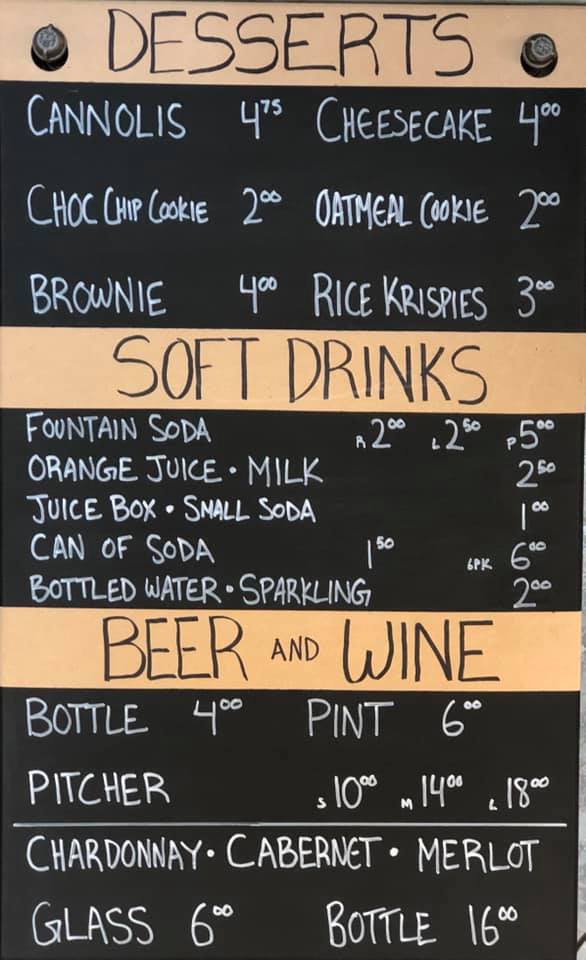 DESSERTS
CANNOLIS 4.75 CHEESECAKE 4.00
CHOC CHIP COOKIE 2.00 OATMEAL COOKIE 2.00
BROWNIE 4.00 RICE KRISPIES 3.00
SOFT DRINKS
FOUNTAIN SODA R 2.00 L 2.50 P 5.00
ORANGE JUICE • MILK 2.50
JUICE BOX • SMALL SODA 1.00
CAN OF SODA 1.50 6PK 6.00
BOTTLED WATER • SPARKLING 2.00
BEER AND WINE
BOTTLE 4.00 PINT 6.00
PITCHER S 10.00 M 14.00 L 18.00
CHARDONNAY • CABERNET • MERLOT
GLASS 6.00 BOTTLE 16.00